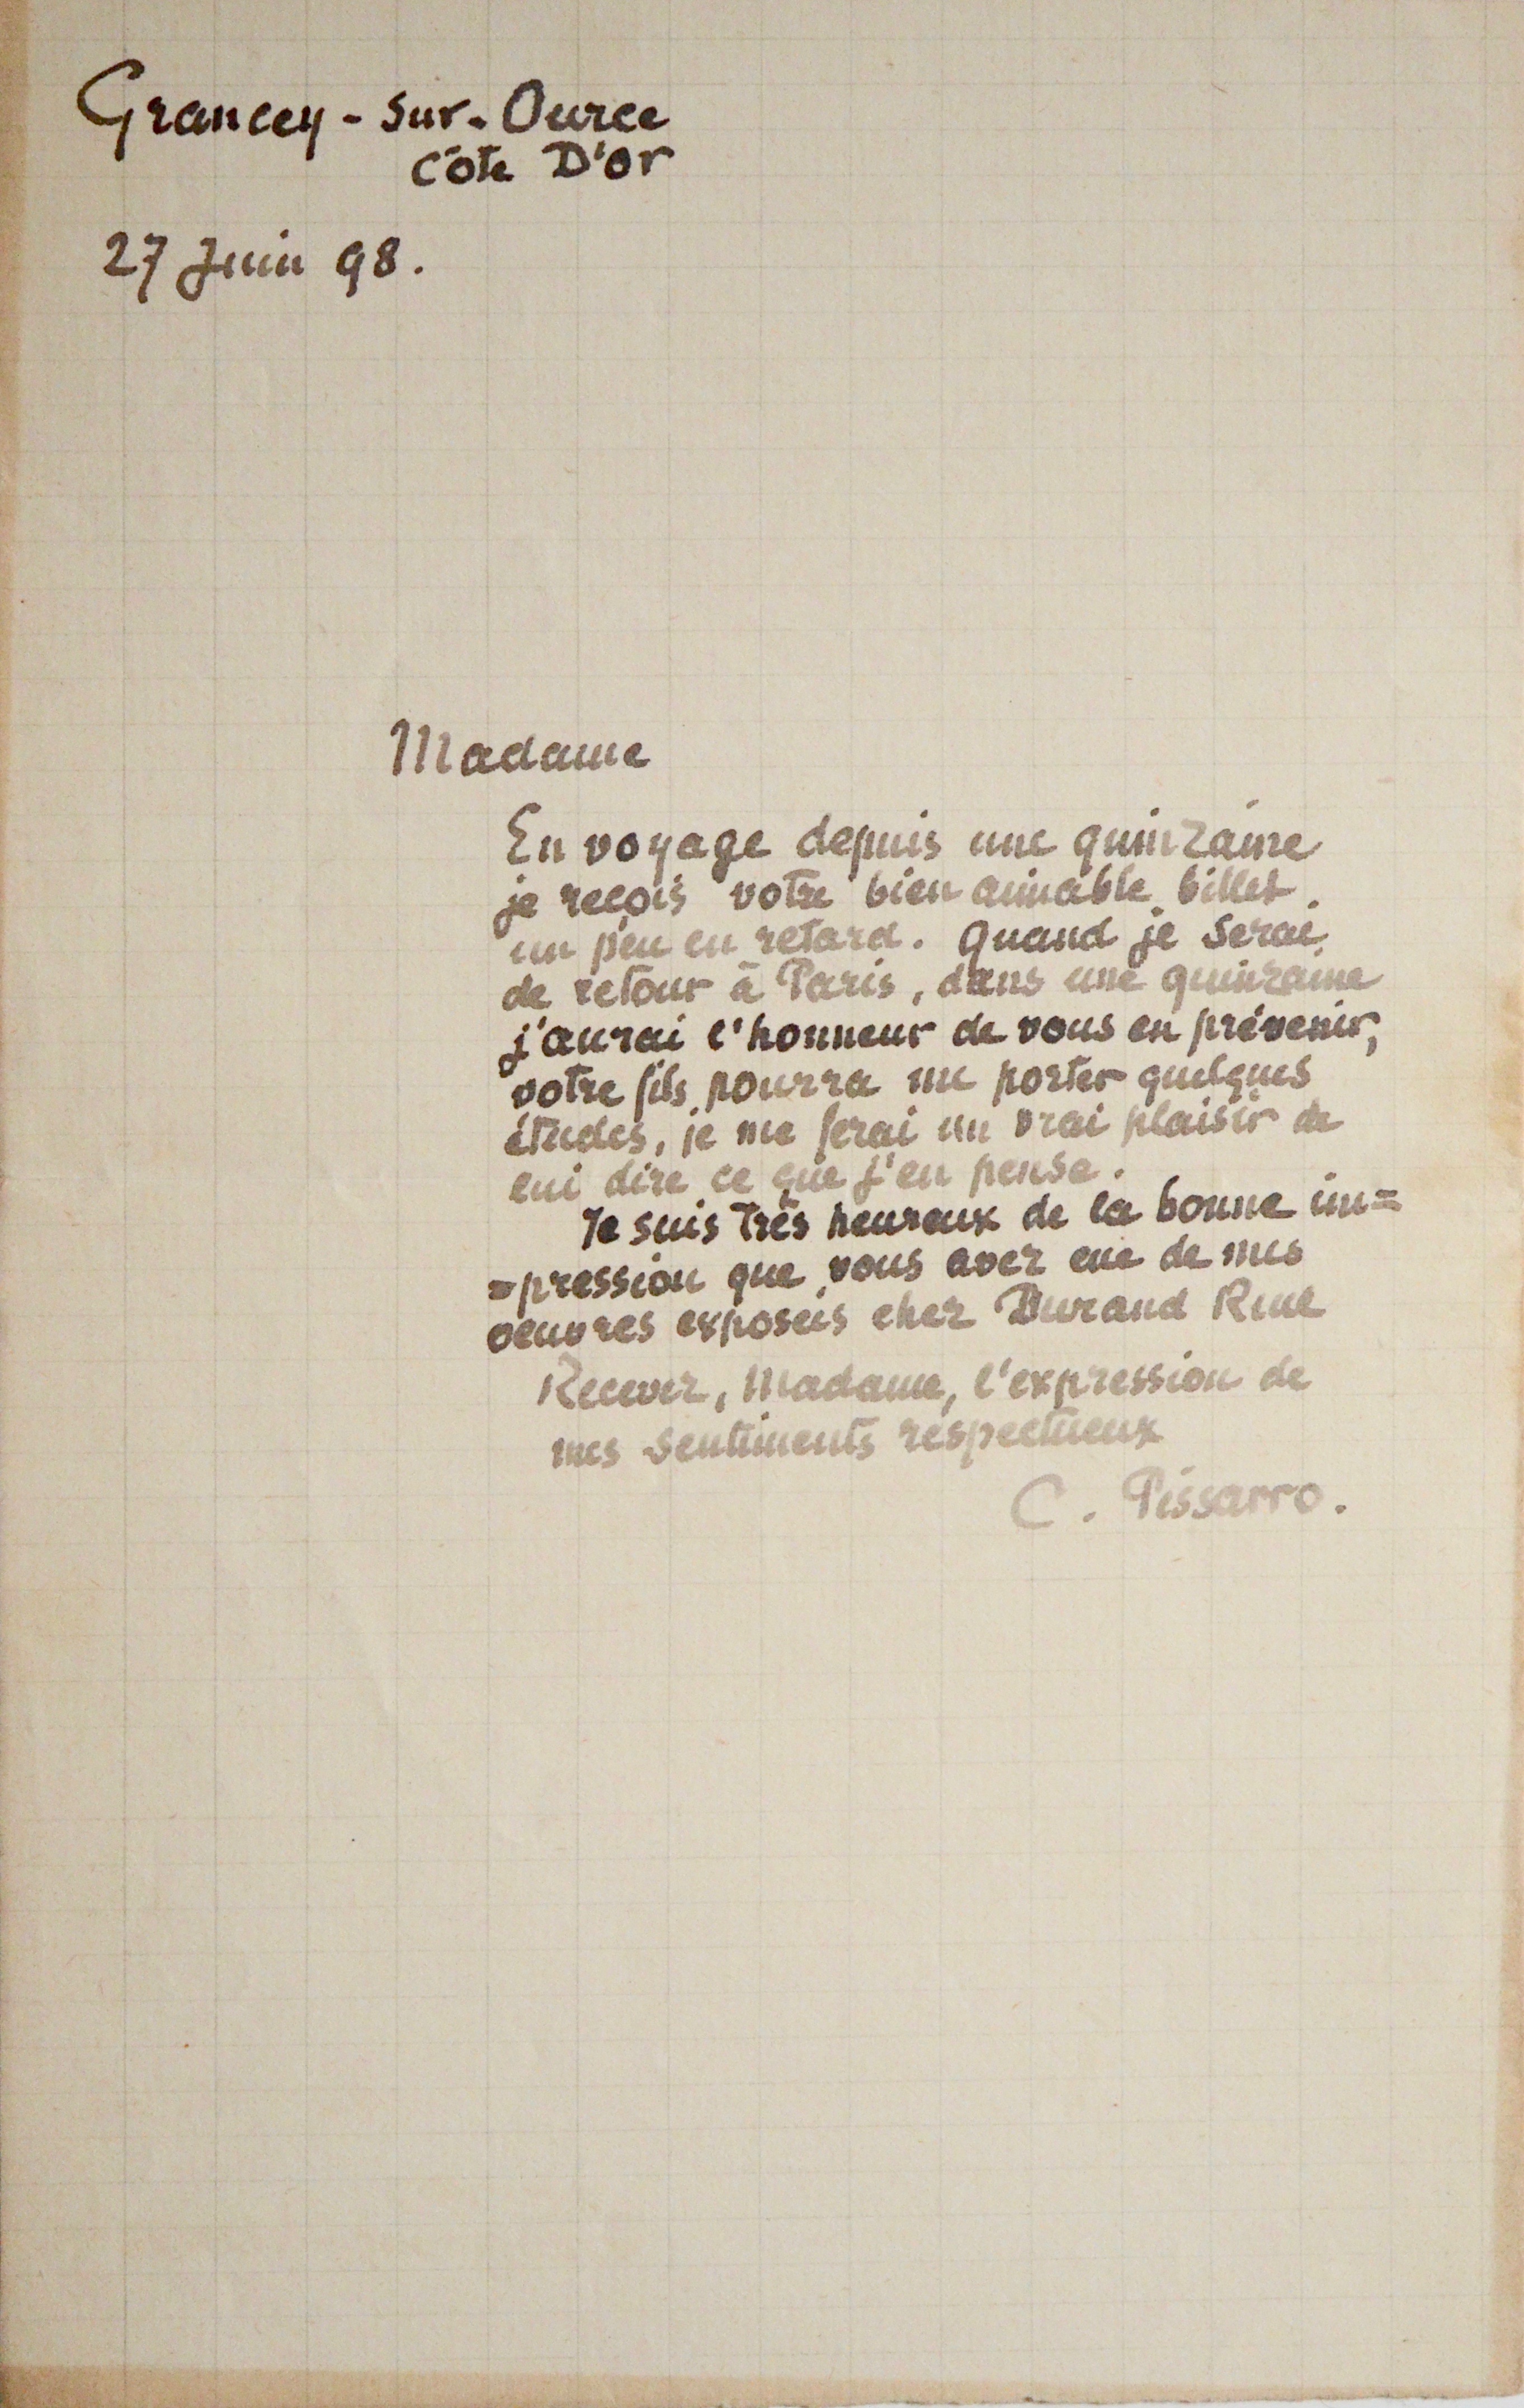 Grancey-sur-Ource
Côte D'or
27 Juin 98.
Madame
En voyage depuis une quinzaine
je reçois votre bien aimable billet
un peu en retard. Quand je serai
de retour à Paris, dans une quinzaine
j'aurai l'honneur de vous en prévenir,
votre fils pourra me porter quelques
études, je me ferai un vrai plaisir de
lui dire ce que j'en pense.
Je suis très heureux de la bonne im=
=pression que vous avez eue de mes
oeuvres exposées chez Durand Ruel
Recevez, Madame, l'expression de
mes sentiments respectueux
C. Pissarro.